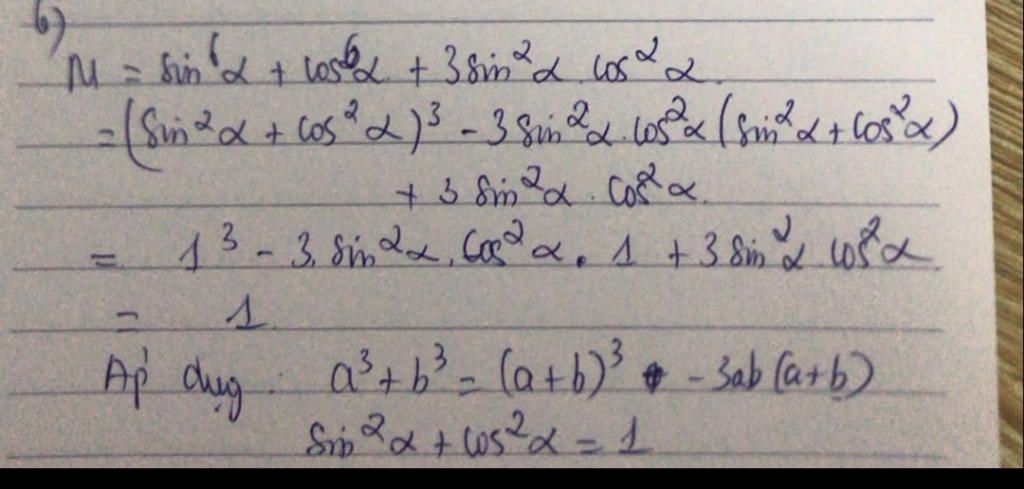 b)
M = sin⁶α + cos⁶α + 3sin²α.cos²α.
= (sin²α + cos²α)³ - 3sin²α.cos²α(sin²α + cos²α)
+ 3 sin²α . cos²α.
= 1³ - 3.sin²α.cos²α.1 + 3sin²α cos²α.
= 1.
Áp dụg : a³ + b³ = (a+b)³ - 3ab(a+b)
sin²α + cos²α = 1